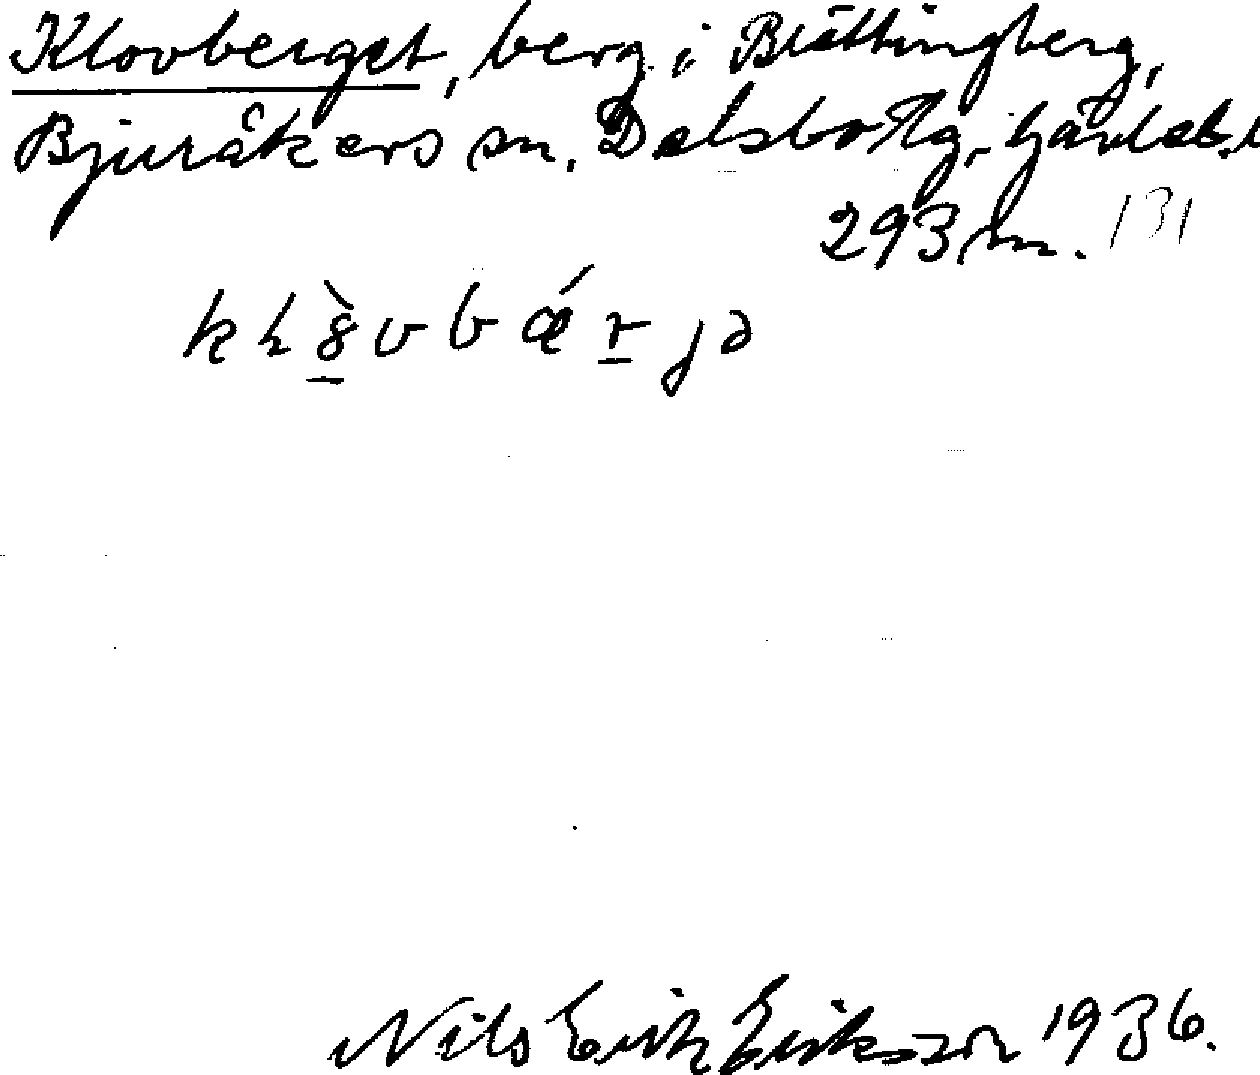 Klovberget, berg i Brättingberg,
Bjuråkers sn. Delsbo tg, Gävleb. l
293 m. 131
Nils Erik Eriksson 1936.